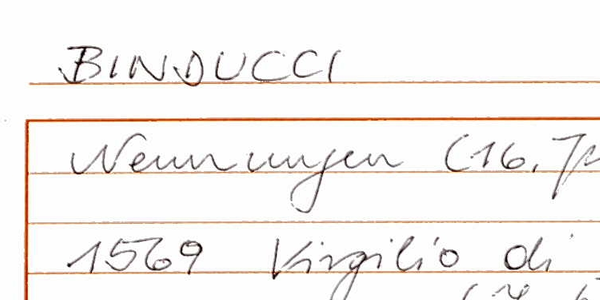 BINDUCCI
Nennungen (16.
1569 Virgilio di